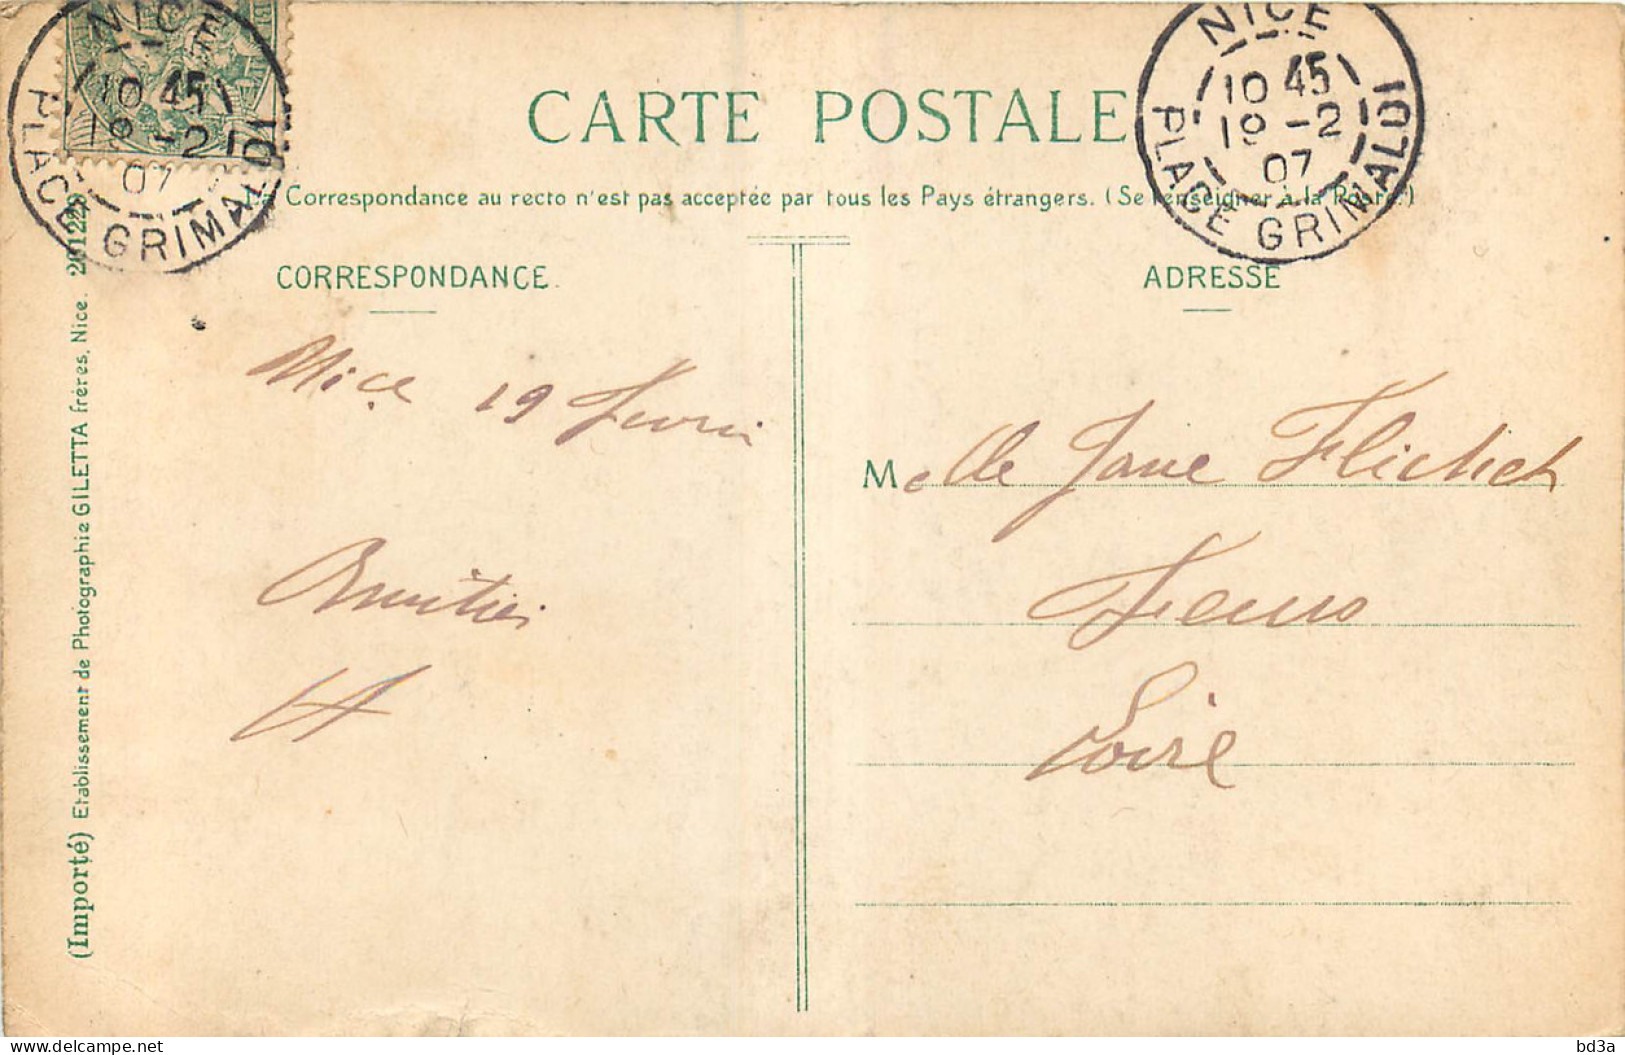 NICE
10 45
19 -2
07
PLACE GRIMALDI
NICE
10 45
19 -2
07
PLACE GRIMALDI
CARTE POSTALE
La Correspondance au recto n'est pas acceptée par tous les Pays étrangers. (Se renseigner à la Poste.)
CORRESPONDANCE.
Nice 19 Fevrier
Amitiés
ADRESSE
Melle Jane
Feurs
Loire
(Importé) Etablissement de Photographie GILETTA frères, Nice. 201228
bd3a